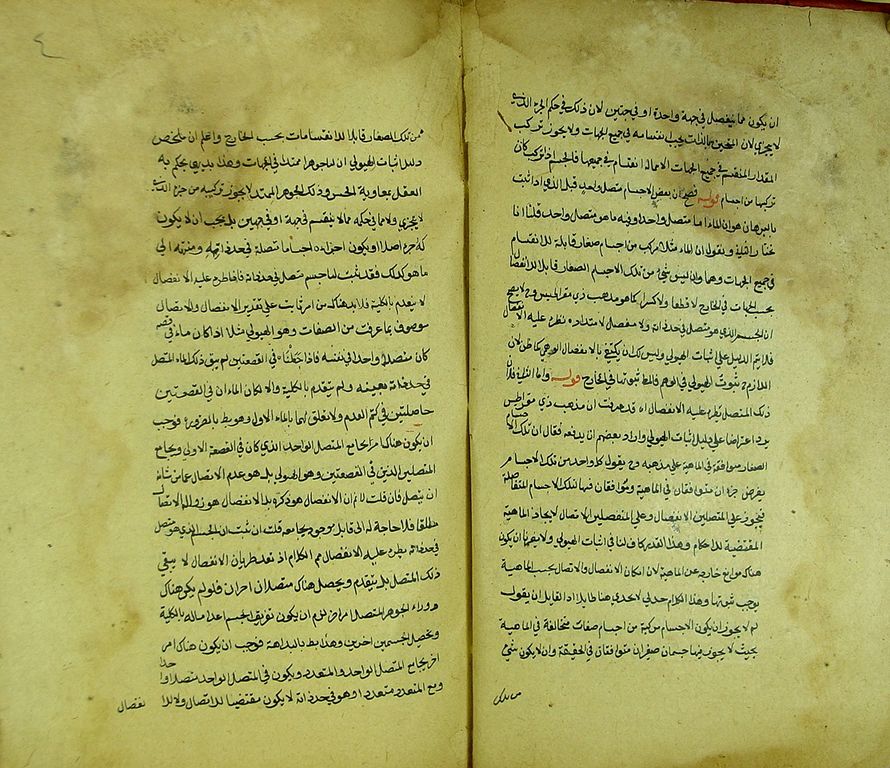 ان يكون مما ينفصل في جهة واحدة او في جهتين لان ذلك في حكم الجزء الذي
لا يتجزى لان المتحيز بالذات يجب انقسامه في جميع الجهات ولا يجوز تركب
المقدار المنقسم في جميع الجهات الا مما له انقسام في جميعها فالجسم اذا تركب كان
تركبها من اجسام قوله فصح ان بعض الاجسام متصل واحد قبل الذي اذا ثبت
بالبرهان هو ان الماء اما متصل واحد او فيه ما هو متصل واحد قلنا انا
نختار الثاني ونقول ان الماء مثلا مركب من اجسام صغار قابلة للانقسام
في جميع الجهات وهما وان ليس شئ من تلك الاجسام الصغار قابلا للانفصال
بحسب الجهات في الخارج لا قطعا ولا كسرا كما هو مذهب ذي مقراطيس وح لا يصح
ان الجسم الذي هو متصل في حد ذاته ولا مفصل لامتداده يطرء عليه الانفصال
فلا يتم الدليل على اثبات الهيولي وليس لك ان يكتفي بالانفصال الوهمي كما ظن لان
اللازم ثبوت الهيولي في الوهم والمط ثبوتها في الخارج قوله واما الثاني فلان
ذلك المتصل يطرء عليه الانفصال اه قد عرفت ان مذهب ذي مقراطيس
يرد اعتراضا على دليل اثبات الهيولي واراد بعضهم ان يدفعه فقال ان تلك الاجسام
الصغار متوافقة في الماهية على مذهبه وح يقول كل واحد من تلك الاجسام
يفرض جزءان متوافقان في الماهية وموافقان فيها لتلك الاجسام المتفاصلة
فيجوز على المتصلين الانفصال وعلى المنفصلين الاتصال لاتحاد الماهية
المقتضية للاحكام وهذا القدر كاف لنا في اثبات الهيولي ولا يضرنا ان يكون
هناك موانع خارجة عن الماهية لان امكان الانفصال والاتصال بحسب الماهية
يوجب ثبوتها وهذا الكلام جدلي لا يجدي هنا طائلا اذ لقايل ان يقول
لم لا يجوز ان يكون الاجسام مركبة من اجسام صغار متخالفة في الماهية
بحيث لا يوجد فيها جسمان صغيران متوافقان في الحقيقة وان لا يكون شئ
من تلك
من تلك الصغار قابلا للانقسامات بحسب الخارج واعلم ان ملخص
دليل اثبات الهيولي ان لنا جوهرا ممتدا في الجهات وهذا بديهي يحكم به
العقل بمعاونة الحس وذلك الجوهر الممتد لا يجوز تركبه من جزء الذي
لا يتجزى ولا مما في حكمه مما لا ينقسم في جهة او في جهتين بل يجب ان لا يكون
له جزء اصلا او يكون اجزاءه اجساما متصلة في حد ذاتها ومنتهية الى
ما هو كذلك فقد ثبت لنا جسم متصل في حد ذاته فاذا طرء عليه الانفصال
لا ينعدم بالكلية فلا بد هناك من امر ثابت على تقدير الانفصال والاتصال
موصوف بما عرفت من الصفات وهو الهيولي مثلا اذا كان ماء في قصعة
كان متصلا واحدا في نفسه فاذا جعلناه في القصعتين لم يبق ذلك الماء المتصل
في حد ذاته بعينه ولم ينعدم بالكلية والا لكان الماءان في القصعتين
حاصلين في كتم العدم ولا تعلق لهما بالماء الاول وهو بط بالضرورة فوجب
ان يكون هناك امر يجامع المتصل الواحد الذي كان في القصعة الاولى ويجامع
المتصلين الذين في القصعتين وهو الهيولي بل هو عدم الاتصال عما من شأنه
ان يتصل فان قلت لا نم ان الانفصال هو ذكره بل الانفصال هو زوال الاتصال
مطلقا فلا حاجة له الى قابل موجود يجامعه قلت ان ثبت ان الجسم الذي هو متصل
في حد ذاته يطرء عليه الانفصال تم الكلام اذ بعد طريان الانفصال لا يبقى
ذلك المتصل بل ينعدم ويحصل هناك متصلان اخران فلو لم يكن هناك
وراء الجوهر المتصل امر اخر لزم ان يكون تفريق الجسم اعداما له بالكلية
وتحصيل لجسمين اخرين وهذا بط بالبداهة فوجب ان يكون هناك امر
اخر يجامع المتصل الواحد والمتعدد ويكون في المتصل الواحد متصلا واحدا
ومع المتعدد متعددا وهو في حد ذاته لا يكون مقتضيا للاتصال ولا للا
نفصال